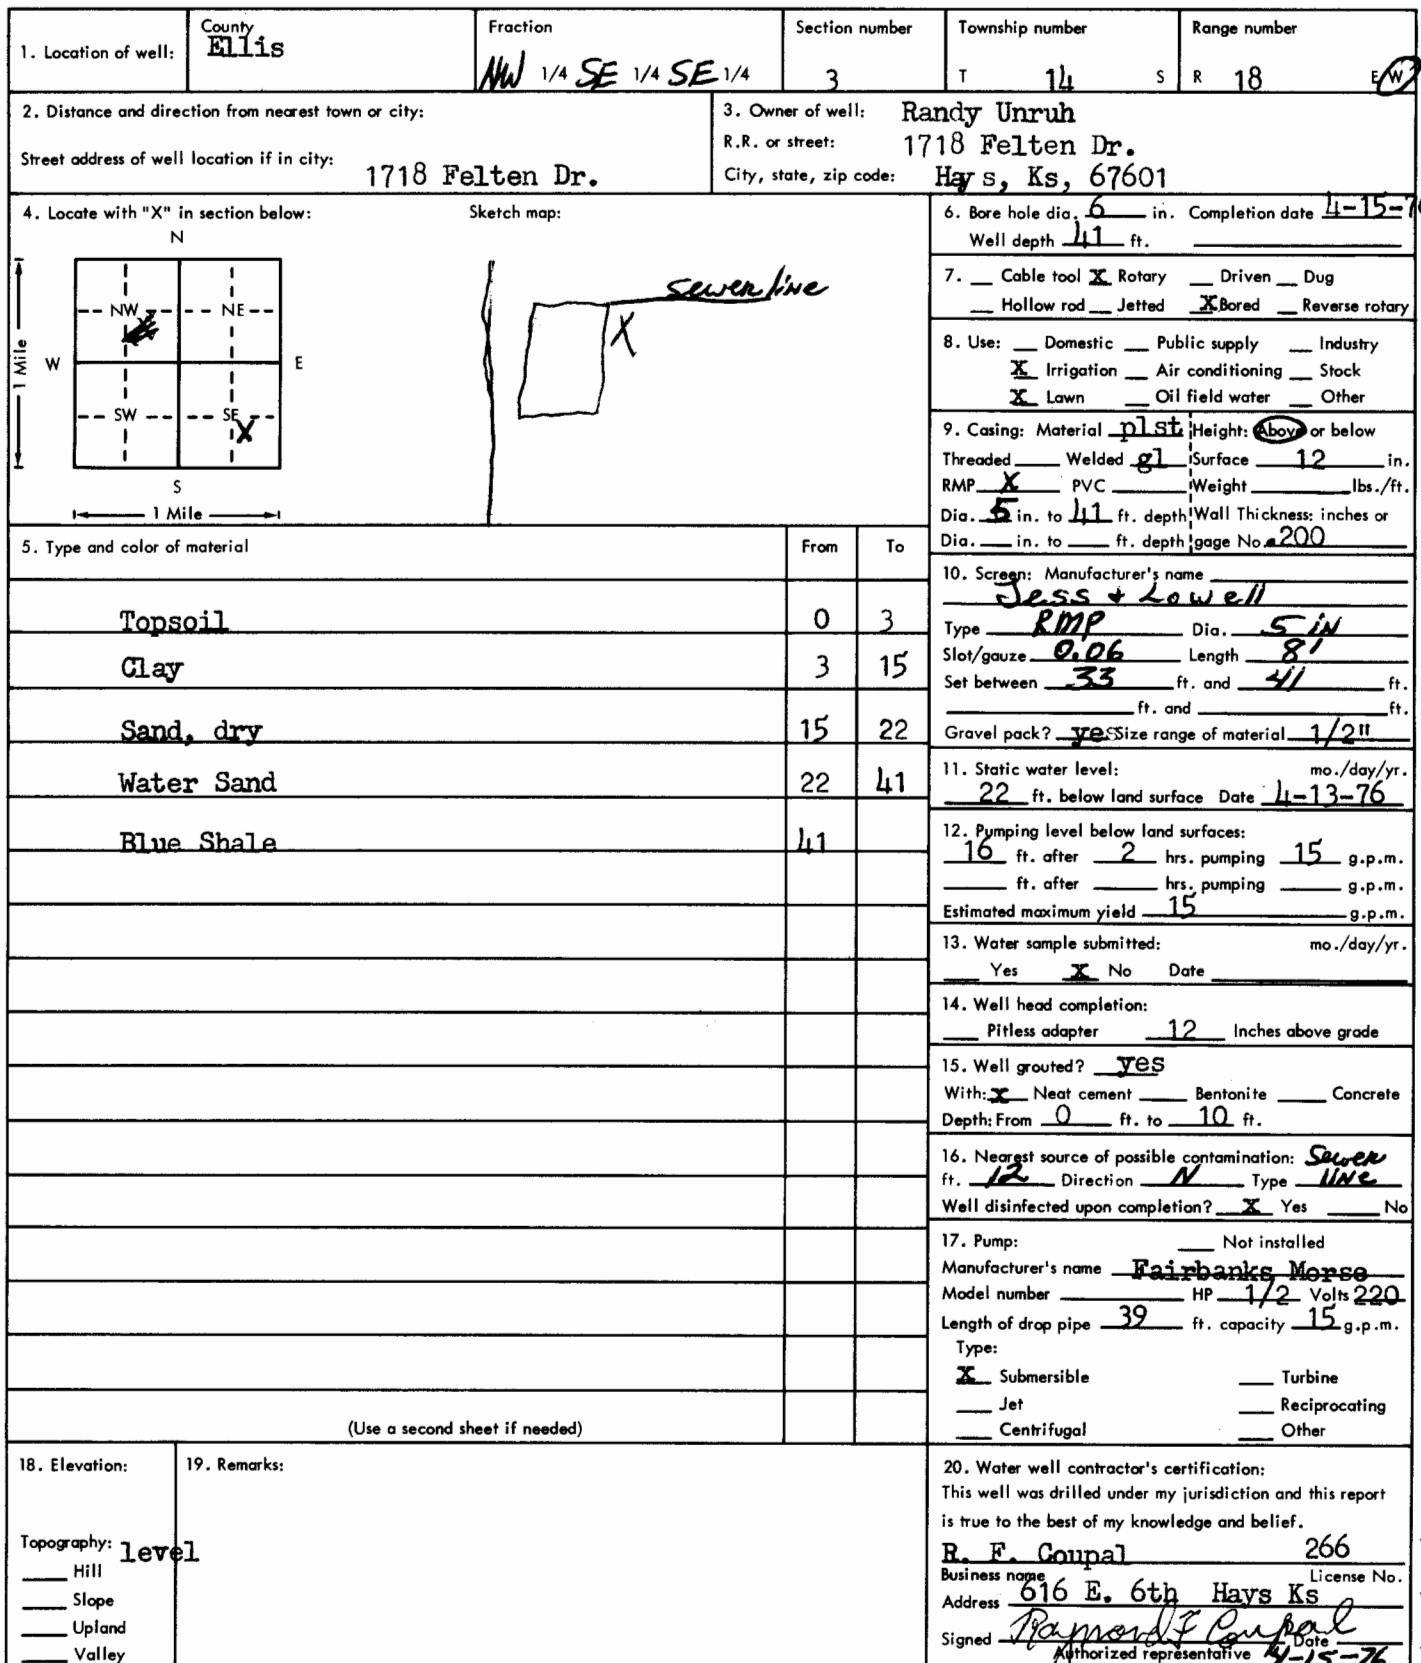 1. Location of well: County Ellis Fraction NW 1/4 SE 1/4 SE 1/4 Section number 3 Township number T 14 S Range number R 18 E W
2. Distance and direction from nearest town or city:
Street address of well location if in city: 1718 Felten Dr.
3. Owner of well: Randy Unruh
R.R. or street: 1718 Felten Dr.
City, state, zip code: Hays, Ks, 67601
4. Locate with "X" in section below: Sketch map:
N
NW NE
W E
SW SE
X
S
1 Mile
1 Mile
sewer line
X
5. Type and color of material From To
Topsoil 0 3
Clay 3 15
Sand, dry 15 22
Water Sand 22 41
Blue Shale 41
(Use a second sheet if needed)
6. Bore hole dia. 6 in. Completion date 4-15-76
Well depth 41 ft.
7. Cable tool X Rotary Driven Dug
Hollow rod Jetted X Bored Reverse rotary
8. Use: Domestic Public supply Industry
X Irrigation Air conditioning Stock
X Lawn Oil field water Other
9. Casing: Material plst Height: Above or below
Threaded Welded gl Surface 12 in.
RMP X PVC Weight lbs./ft.
Dia. 5 in. to 41 ft. depth Wall Thickness: inches or
Dia. in. to ft. depth gage No. .200
10. Screen: Manufacturer's name
Jess + Lowell
Type RMP Dia. 5 IN
Slot/gauze 0.06 Length 8'
Set between 33 ft. and 41 ft.
ft. and ft.
Gravel pack? yes Size range of material 1/2"
11. Static water level: mo./day/yr.
22 ft. below land surface Date 4-13-76
12. Pumping level below land surfaces:
16 ft. after 2 hrs. pumping 15 g.p.m.
ft. after hrs. pumping g.p.m.
Estimated maximum yield 15 g.p.m.
13. Water sample submitted: mo./day/yr.
Yes X No Date
14. Well head completion:
Pitless adapter 12 Inches above grade
15. Well grouted? yes
With: X Neat cement Bentonite Concrete
Depth: From 0 ft. to 10 ft.
16. Nearest source of possible contamination: Sewer
ft. 12 Direction N Type line
Well disinfected upon completion? X Yes No
17. Pump: Not installed
Manufacturer's name Fairbanks Morse
Model number HP 1/2 Volts 220
Length of drop pipe 39 ft. capacity 15 g.p.m.
Type:
X Submersible Turbine
Jet Reciprocating
Centrifugal Other
18. Elevation:
Topography: level
Hill
Slope
Upland
Valley
19. Remarks:
20. Water well contractor's certification:
This well was drilled under my jurisdiction and this report
is true to the best of my knowledge and belief.
R. F. Coupal 266
Business name License No.
Address 616 E. 6th Hays Ks
Signed Raymond F Coupal Date 4-15-76
Authorized representative